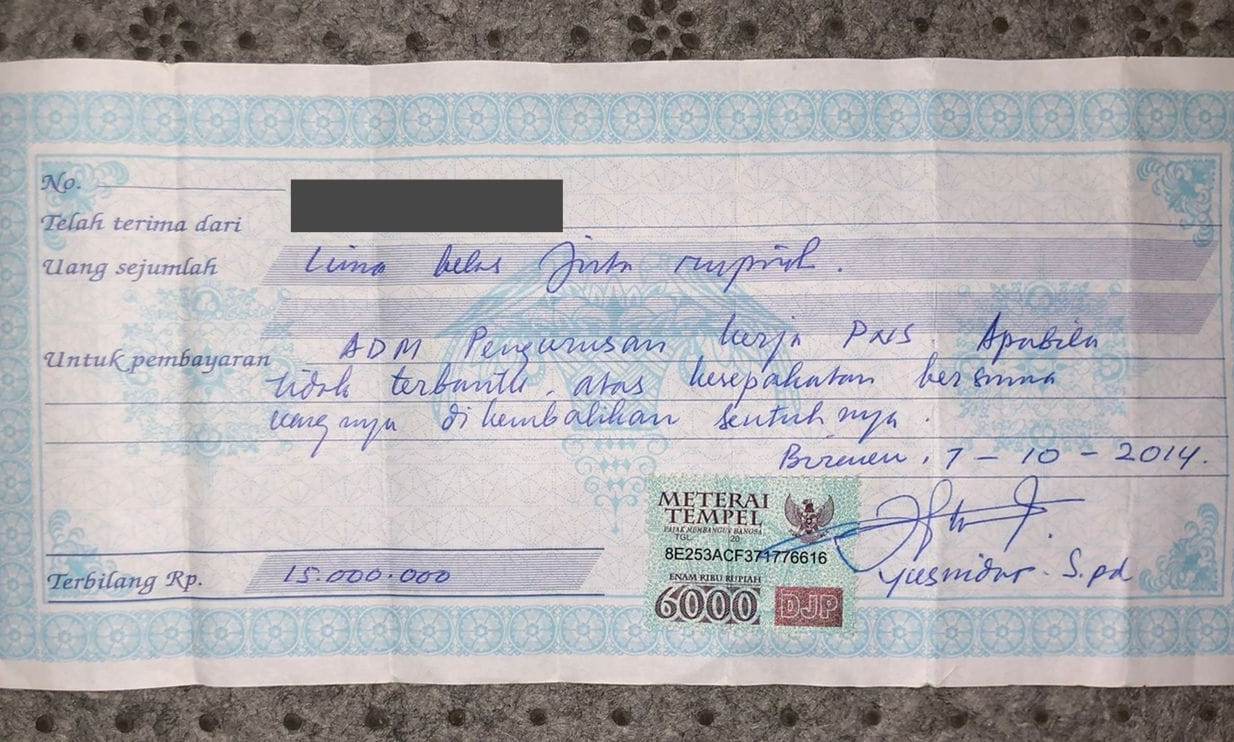 No.
Telah terima dari
Uang sejumlah Lima belas Juta rupiah.
Untuk pembayaran ADM Pengurusan kerja PNS. Apabila
tidak terbantu. atas kesepakatan bersama
uang nya di kembalikan seutuh nya.
Bireuen, 7 - 10 - 2014.
METERAI
TEMPEL
PAJAK MEMBANGUN BANGSA
TGL. 20
8E253ACF371776616
ENAM RIBU RUPIAH
6000 DJP
Yusnidar. S.pd
Terbilang Rp. 15.000.000